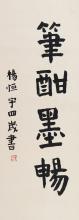 筆酣墨暢
楊恒宇四歲書